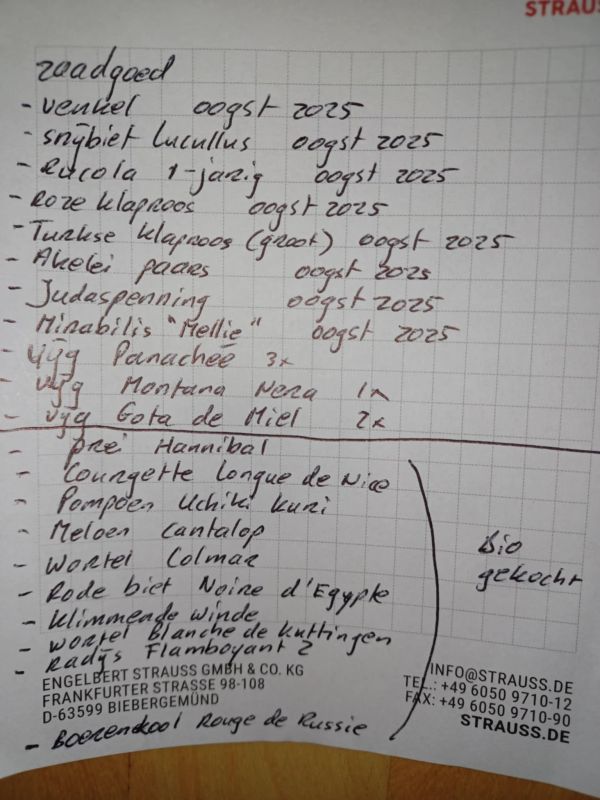 STRAUSS
zaadgoed
- venkel oogst 2025
- snijbiet Lucullus oogst 2025
- Rucola 1-jarig oogst 2025
- Roze klaproos oogst 2025
- Turkse klaproos (groot) oogst 2025
- Akelei paars oogst 2025
- Judaspenning oogst 2025
- Mirabilis "Mellie" oogst 2025
- vijg Panachée 3x
- vijg Montana Nera 1x
- vijg Gota de Miel 2x
- prei Hannibal
- Courgette Longue de Nice
- Pompoen Uchiki Kuri
- Meloen Cantalop
- Wortel Colmar
- Rode biet Noire d'Egypte
- Klimmende winde
- Wortel Blanche de Kuttingen
- Radijs Flamboyant 2
Bio
gekocht
ENGELBERT STRAUSS GMBH & CO. KG
FRANKFURTER STRASSE 98-108
D-63599 BIEBERGEMÜND
INFO@STRAUSS.DE
TEL.: +49 6050 9710-12
FAX: +49 6050 9710-90
STRAUSS.DE
- Boerenkool Rouge de Russie